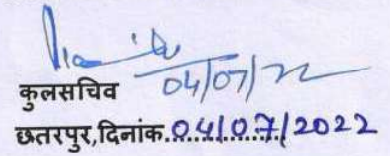 04/07/22
कुलसचिव
छतरपुर,दिनांक..04/07/2022